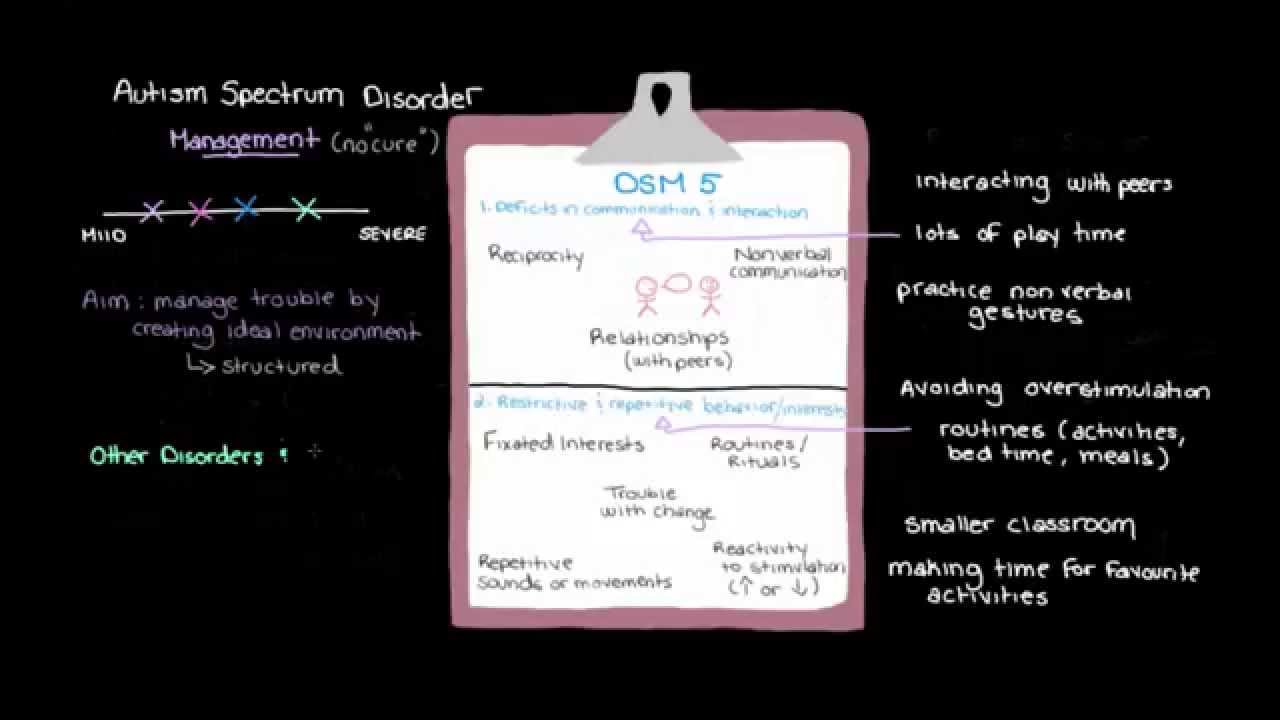 Autism Spectrum Disorder
Management (no "cure")
MILD
SEVERE
Aim : manage trouble by
creating ideal environment
↳ structured
Other Disorders :
DSM 5
1. Deficits in communication & interaction
Reciprocity
Nonverbal
communication
Relationships
(with peers)
2. Restrictive & repetitive behavior/interests
Fixated Interests
Routines/
Rituals
Trouble
with change
Repetitive
sounds or movements
Reactivity
to stimulation
(↑ or ↓)
interacting with peers
lots of play time
practice non verbal
gestures
Avoiding overstimulation
routines (activities,
bed time, meals)
smaller classroom
making time for favourite
activities